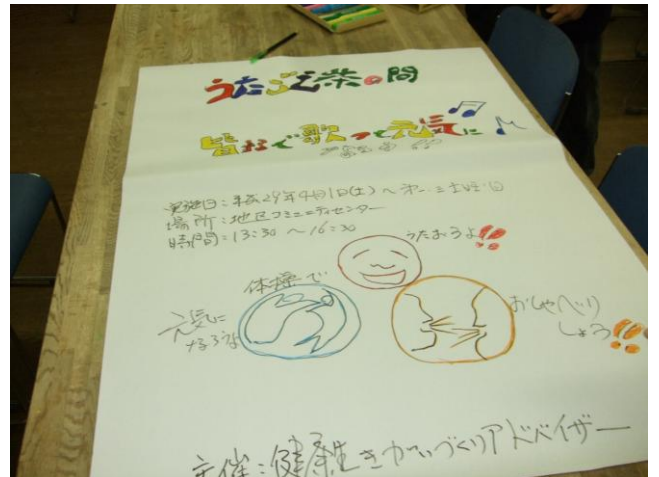 うたごえ茶の間
皆なで歌って元気に
実施日:平成29年4月1日(土)~第一、三土曜日
場所:地区コミュニティセンター
時間:13:30 ~16:30
うたおうよ!!
体操で
元気に
なろうよ
おしゃべり
しよう!!
主催:健康生きがいづくりアドバイザー